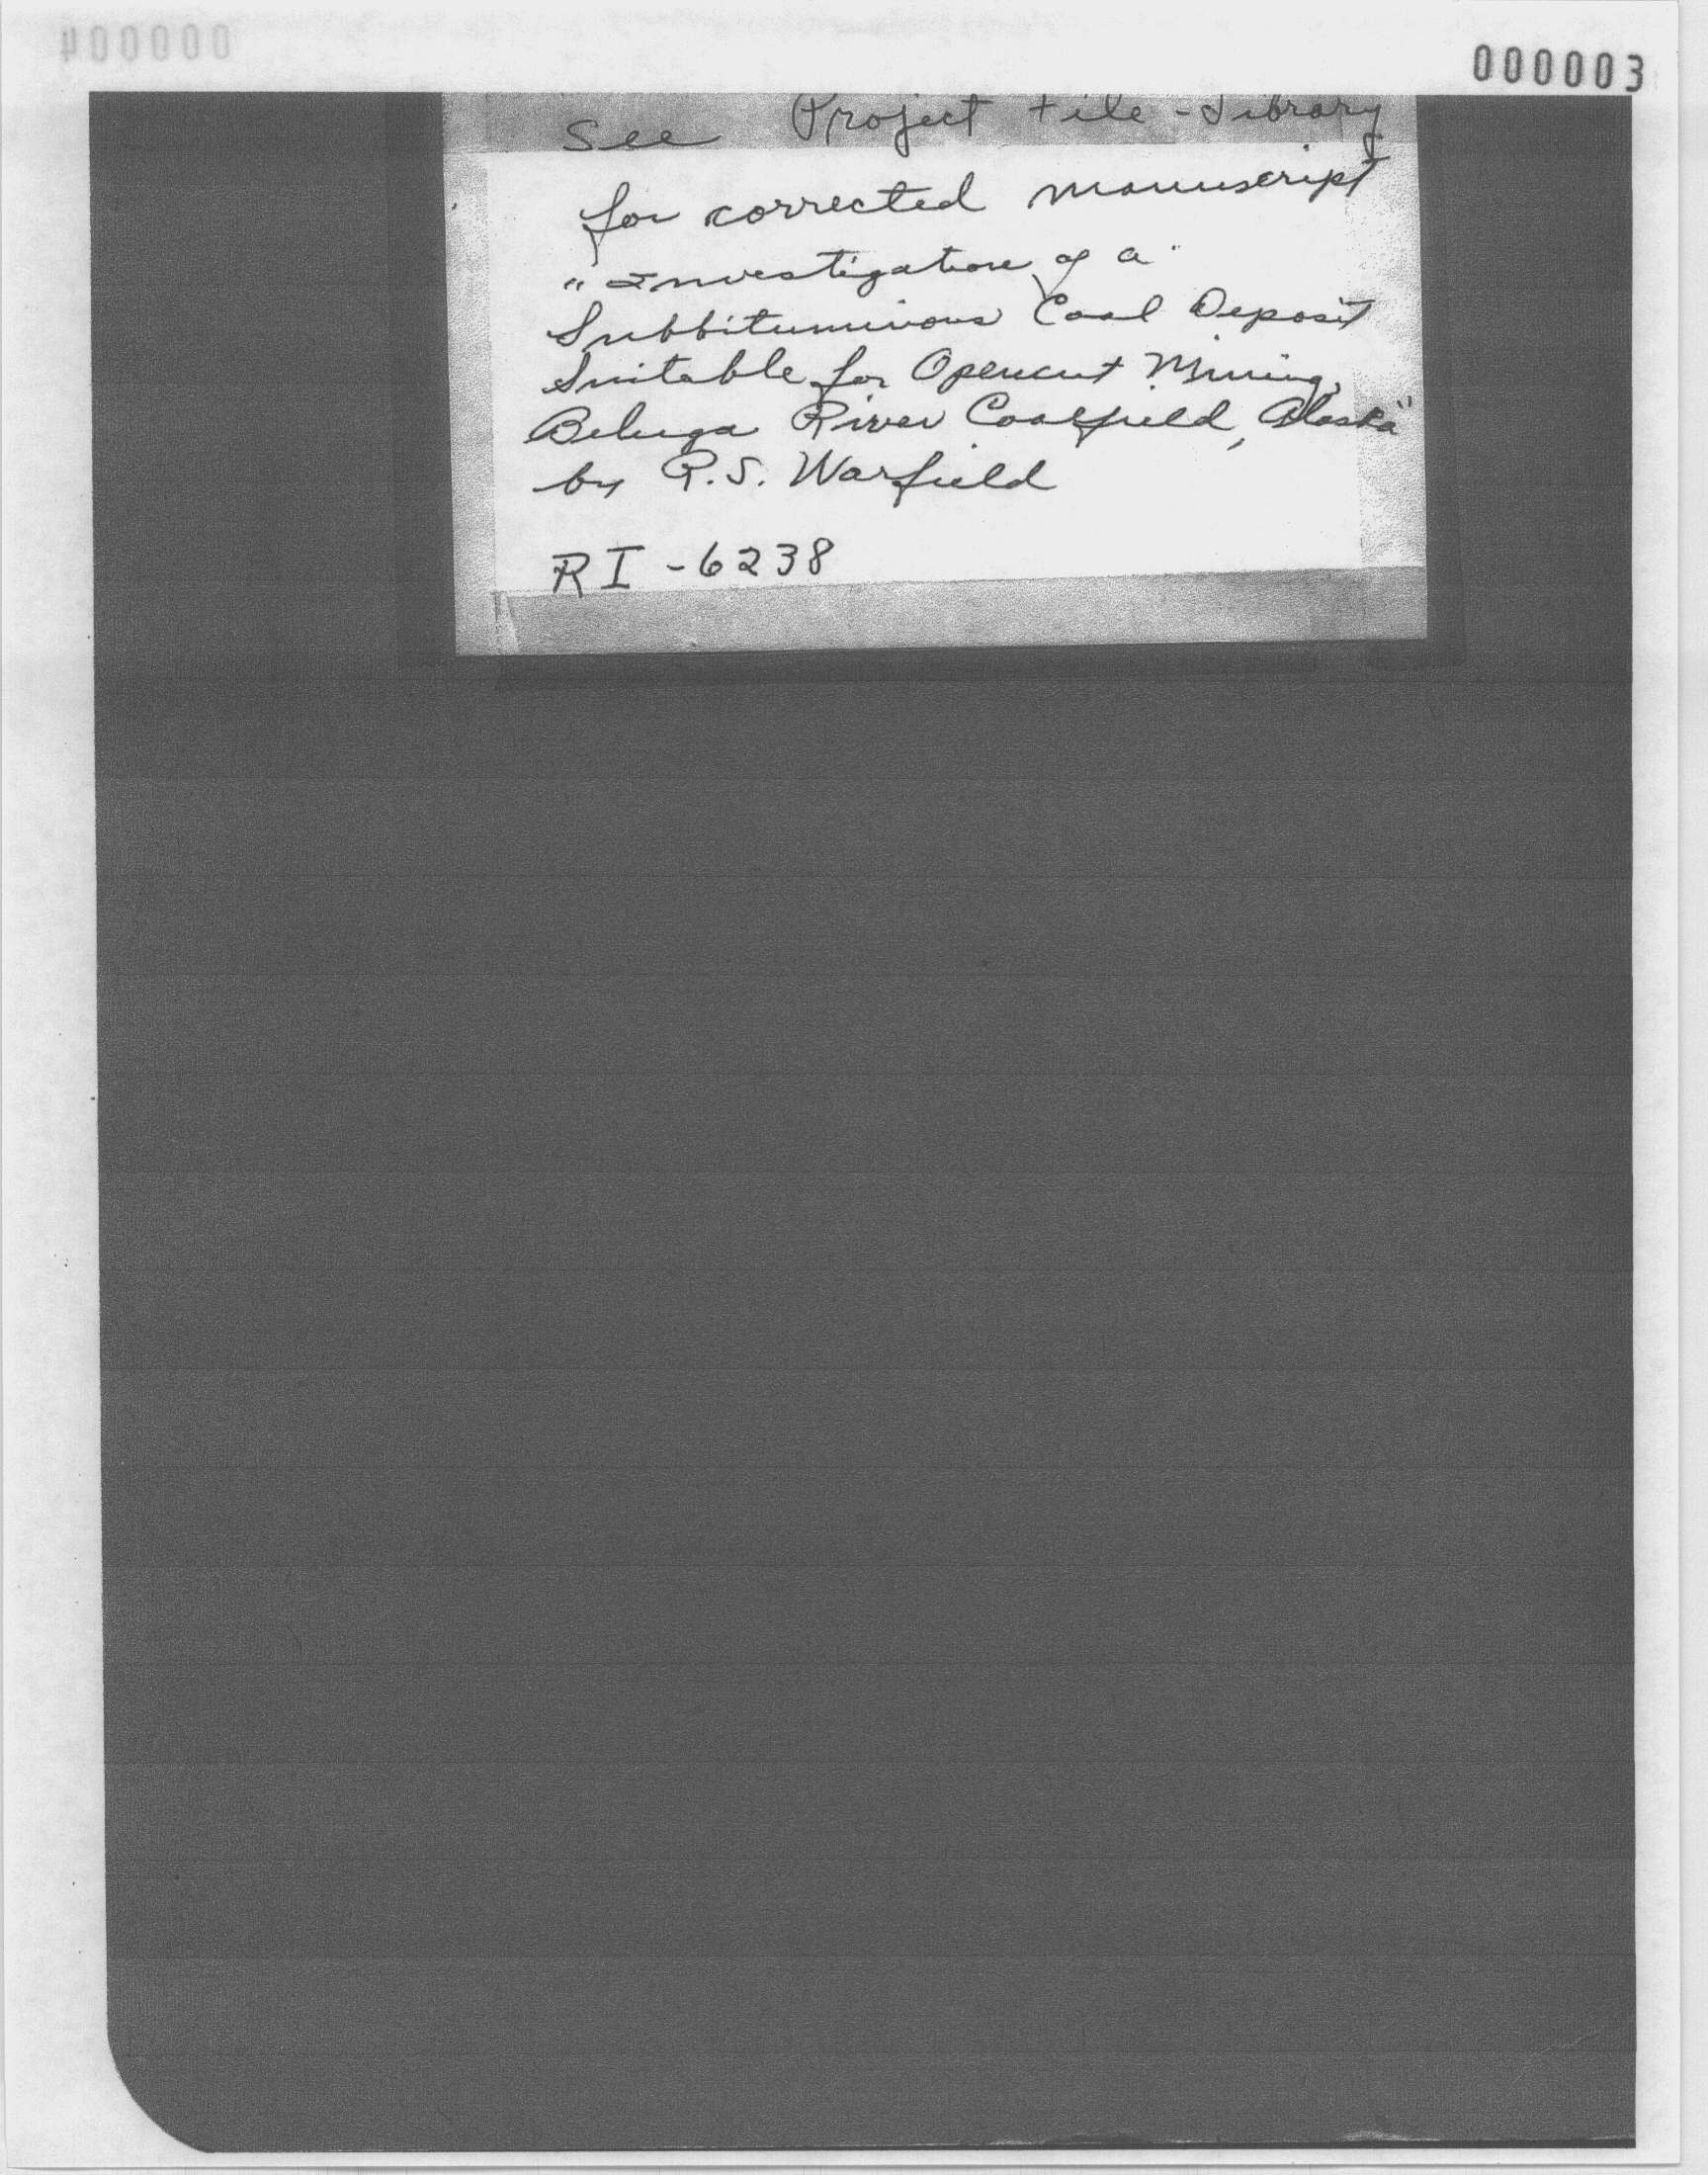 000003
See Project File - Library
for corrected manuscript
"Investigation of a"
Subbituminous Coal Deposit
Suitable for Opencut Mining,
Beluga River Coalfield, Alaska"
by R.S. Warfield
RI - 6238